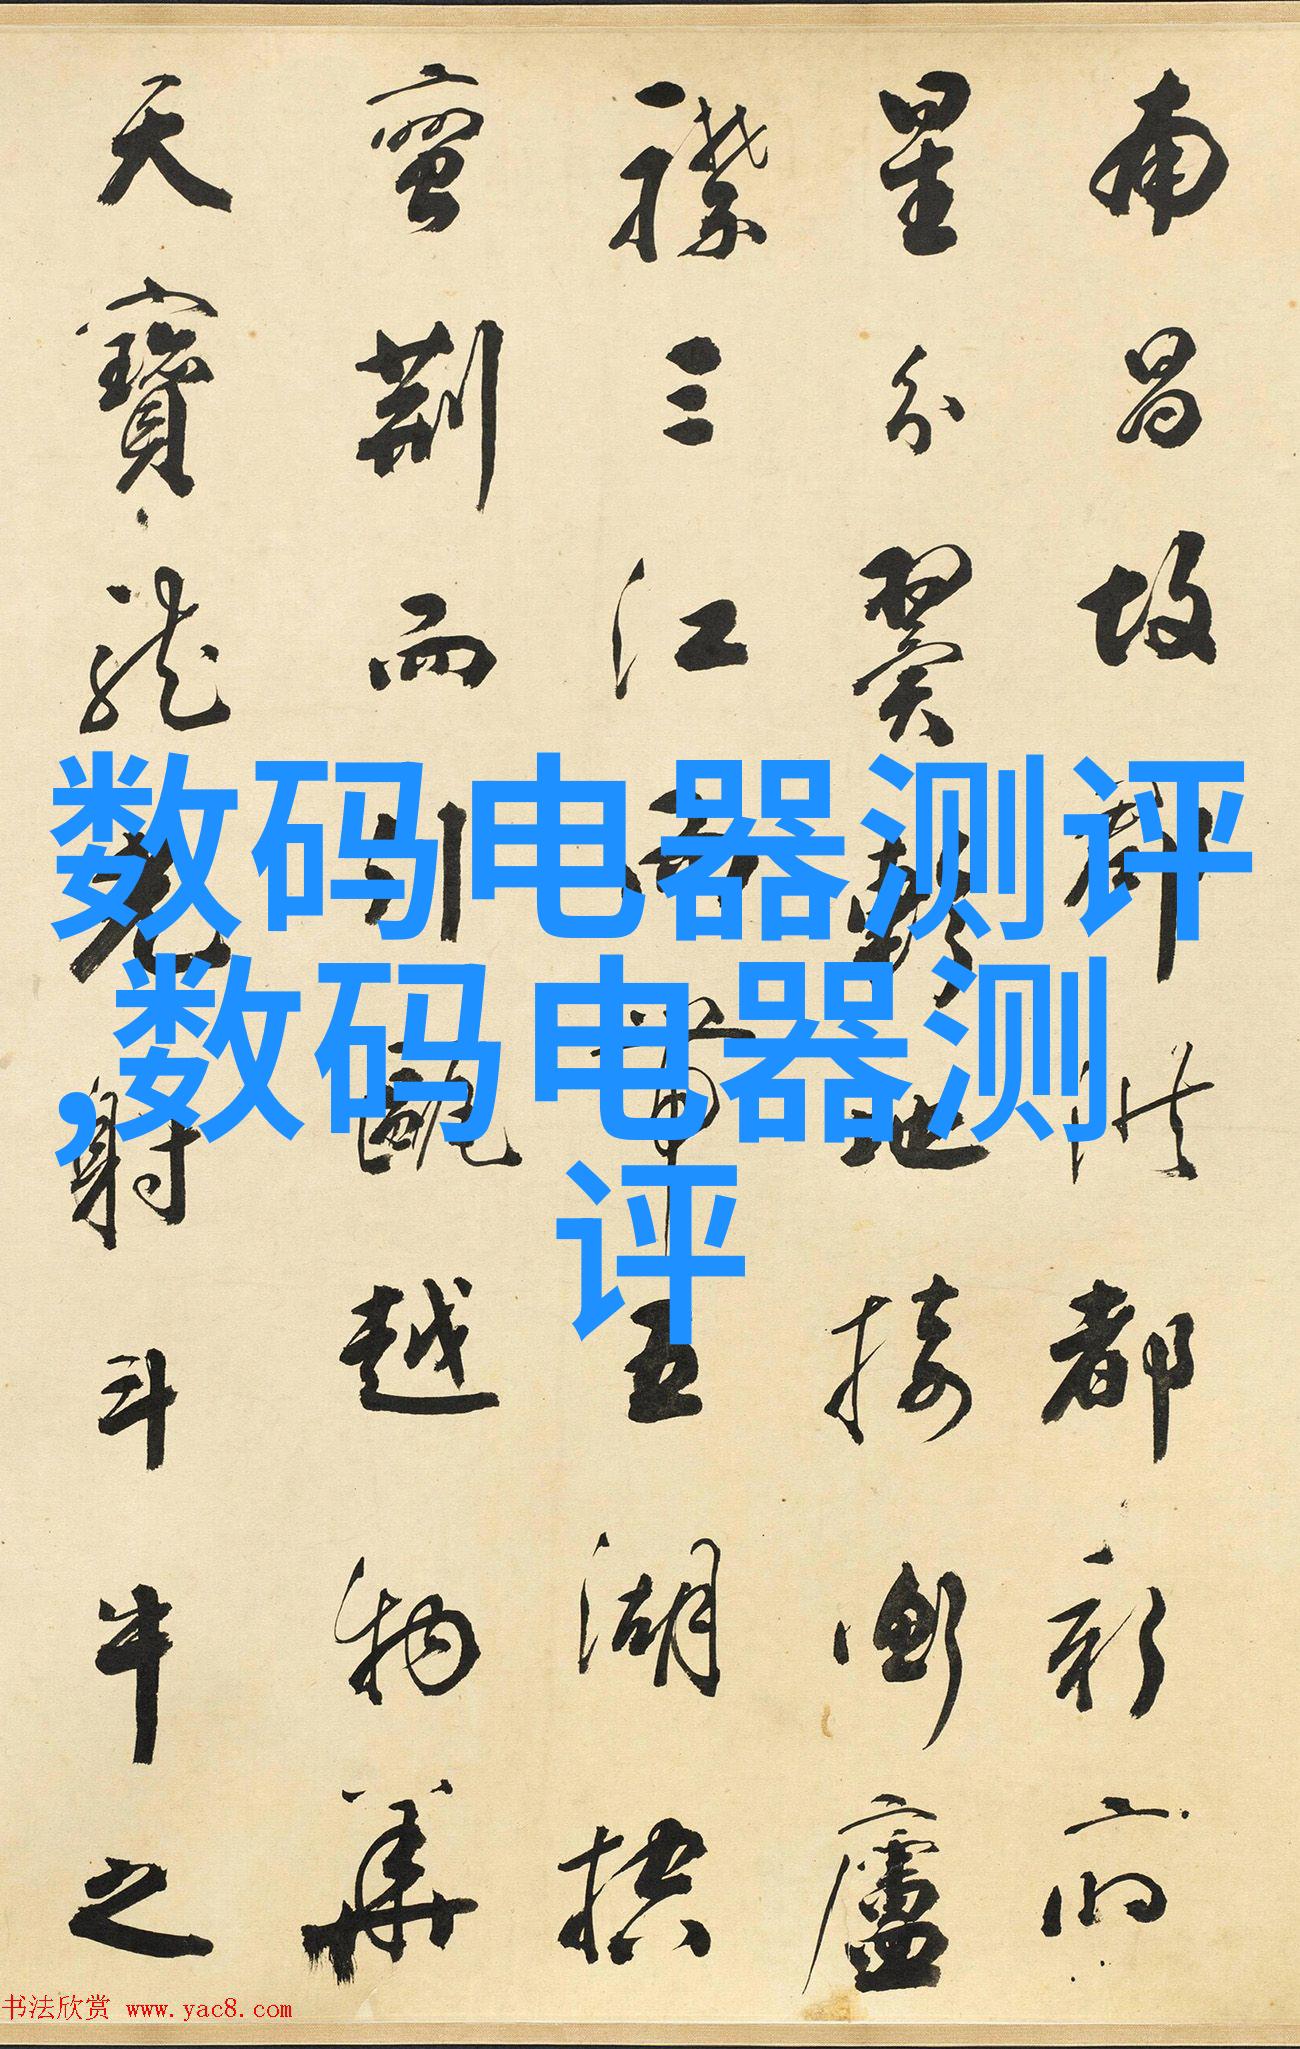 南昌故郡洪都新府
星分翼軫地接衡廬
襟三江而帶五湖控
蠻荊而引甌越物華
天寶龍光射斗牛之
数码电器测评
,数码电器测
评
书法欣赏 www.yac8.com